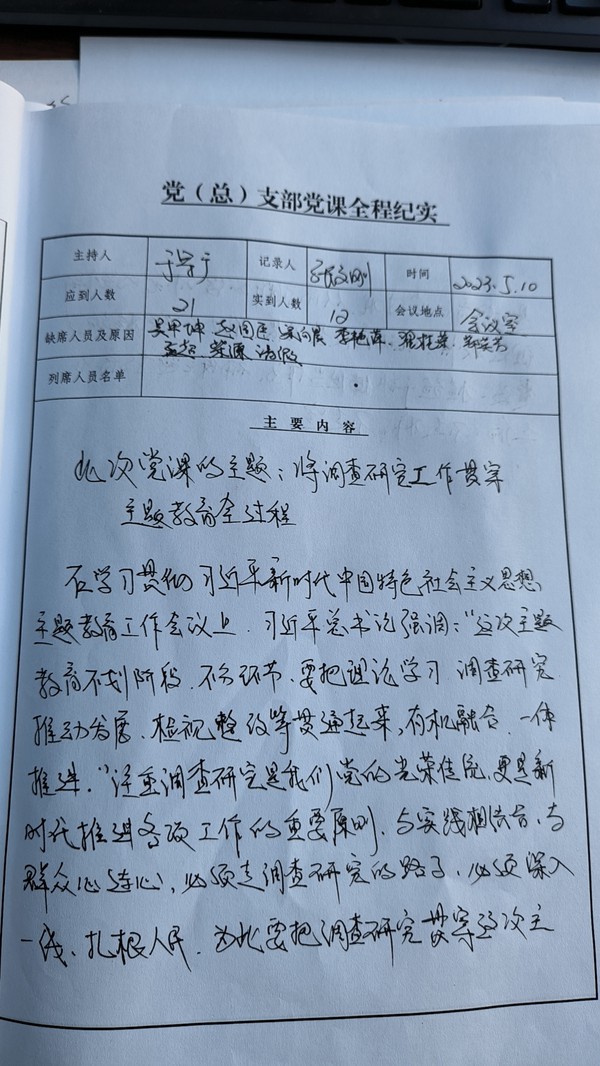 党（总）支部党课全程纪实
主持人 记录人 时间 2023.5.10
应到人数 21 实到人数 12 会议地点 会议室
缺席人员及原因
请假
列席人员名单
主要内容
此次党课的主题：将调查研究工作贯穿
主题教育全过程
在学习贯彻习近平新时代中国特色社会主义思想
主题教育工作会议上，习近平总书记强调："这次主题
教育不划阶段、不分环节，要把理论学习、调查研究、
推动发展、检视整改等贯通起来，有机融合、一体
推进。"注重调查研究是我们党的光荣传统，更是新
时代推进各项工作的重要原则，与实践相结合，与
群众心连心，必须走调查研究的路子，必须深入
一线、扎根人民，为此要把调查研究贯穿这次主